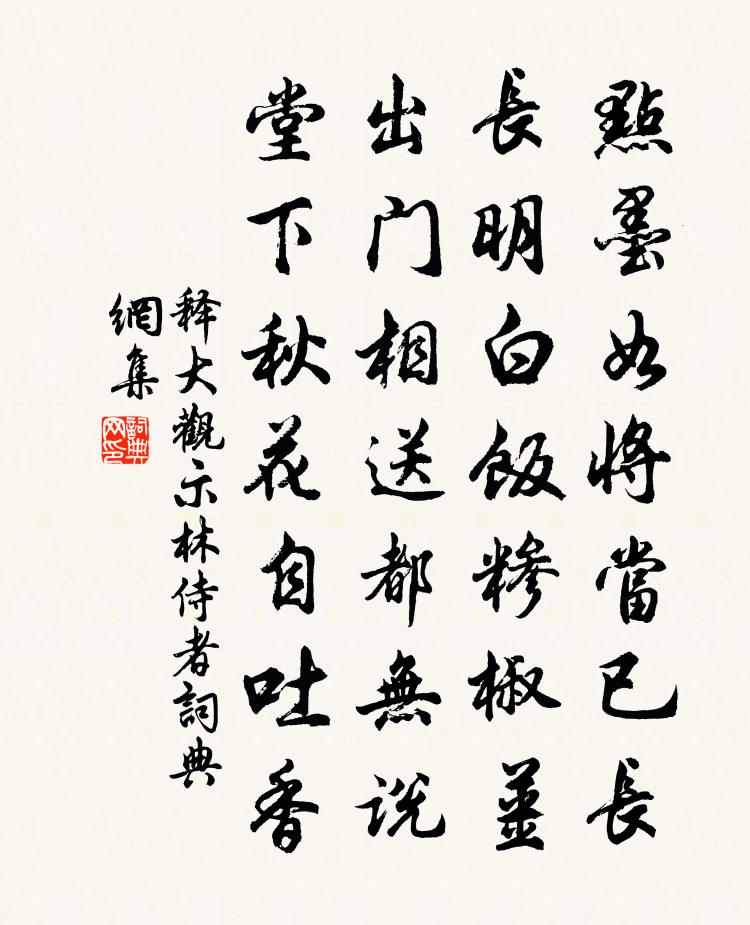 點墨如將當已長
長明白飯糝椒薑
出门相送都無説
堂下秋花自吐香
释大觀示林侍者詞典
網集
詞典
网印